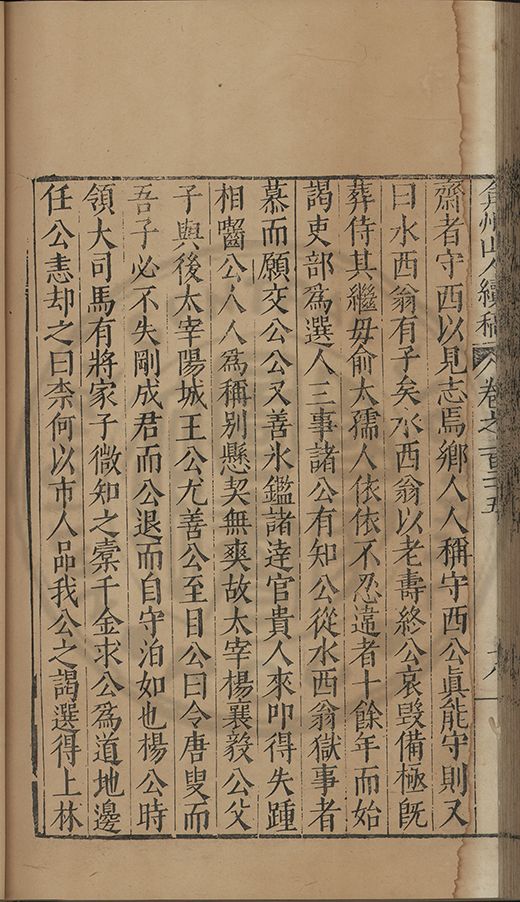 弇州山人續稿 卷之一百二十五 十八
齋者守西以見志焉鄉人人稱守西公眞能守則又
曰水西翁有子矣水西翁以老壽終公哀毀備極旣
葬侍其繼毋俞太孺人依依不忍違者十餘年而始
謁吏部爲選人三事諸公有知公從水西翁獄事者
慕而願交公公又善氷鑑諸達官貴人來叩得失踵
相囓公人人爲稱別懸契無爽故太宰楊襄毅公父
子與後太宰陽城王公尤善公至目公曰令唐叟而
吾子必不失剛成君而公退而自守泊如也楊公時
領大司馬有將家子微知之橐千金求公爲道地邊
任公恚却之曰柰何以市人品我公之謁選得上林